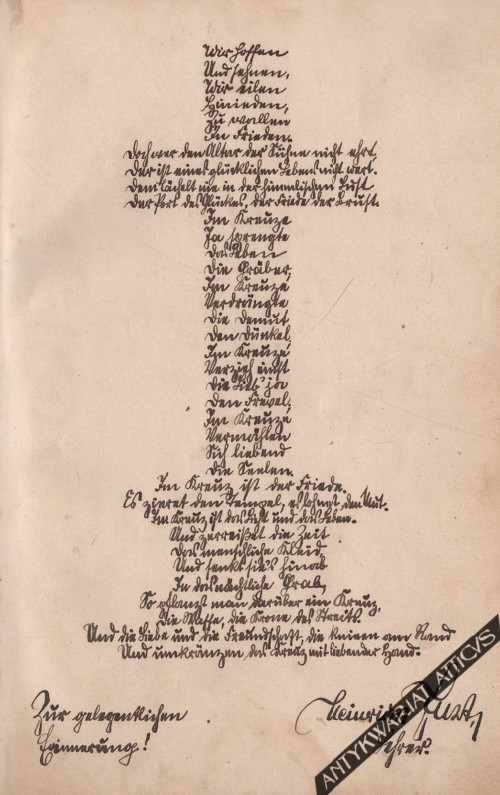 Wir hoffen
Und sehnen,
Wir eilen
Hinieden,
Zu wallen
In Frieden.
Doch wer den Altar der Sühne nicht ehrt,
Der ist eines glücklichen Lebens nicht wert.
Dem lächelt nie in der himmlischen Lust
Der Port des Glückes, der Friede der Brust.
Im Kreuze
Ja sprengte
Das Leben
Die Gräber,
Im Kreuze
Verdrängte
Die Demut
Den Dünkel,
Im Kreuze
Verzieh einst
Die Lieb' ja
Den Frevel,
Im Kreuze
Vermählen
Sich liebend
Die Seelen.
Im Kreuz ist der Friede.
Es zieret den Tempel, es lohnt den Mut.
Im Kreuz ist das Licht und das Leben.
Und zerreißet die Zeit
Das menschliche Kleid,
Und senkt sie's hinab
In das nächtliche Grab,
So pflanzt man darüber ein Kreuz,
Die Waffe, die Krone des Streits.
Und die Liebe und die Freundschaft, die knieen am Rand
Und umkränzen das Kreuz mit liebender Hand.
Zur gelegentlichen
Erinnerung!
Heinrich
Lehrer.
ANTYKWARIAT ATTICVS